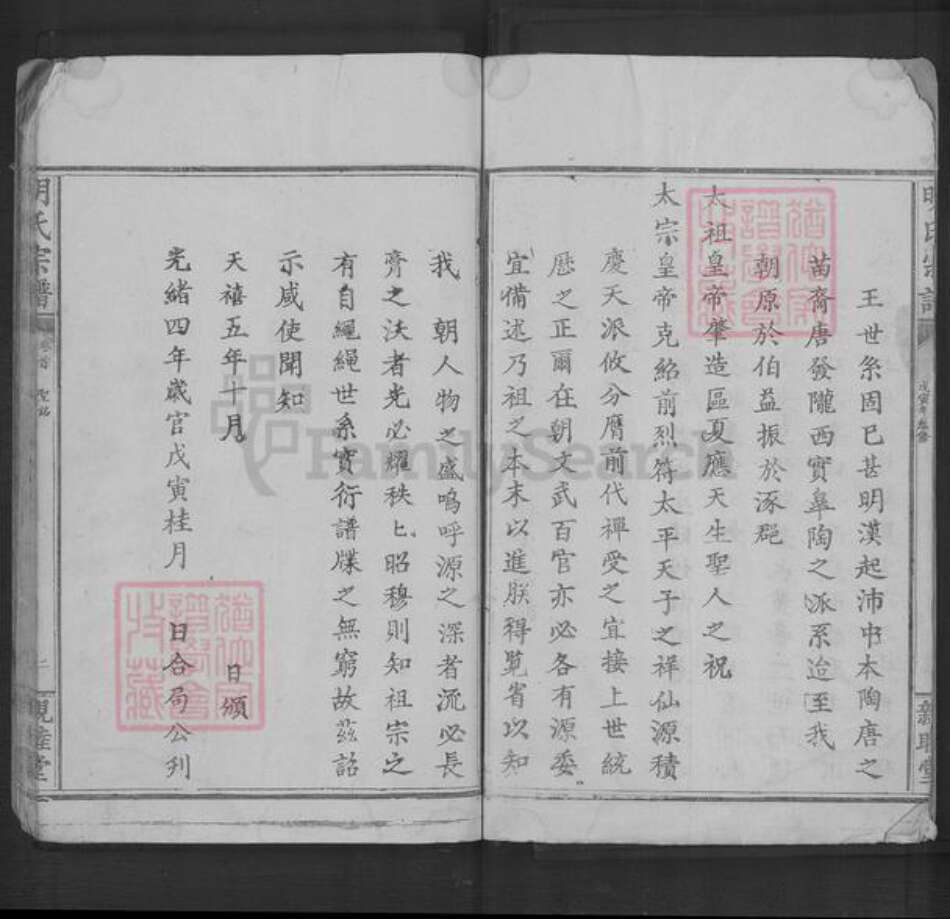 王世系固已甚明漢起沛中本陶唐之
苗裔唐發隴西實皋陶之派系迨至我
朝原於伯益振於涿郡
太祖皇帝肇造區夏應天生聖人之祝
太宗皇帝克紹前烈符太平天子之祥仙源積
慶天派攸分膺前代禪受之宜接上世統
歷之正爾在朝文武百官亦必各有源委
宜備述乃祖之本末以進朕得覽省以知
我朝人物之盛嗚呼源之深者流必長
膏之沃者光必耀秩匕昭穆則知祖宗之
有自繩繩世系實衍譜牒之無窮故茲詔
示咸使聞知
天禧五年十月 日頒
光緒四年歲官戊寅桂月 日合局公列
明氏宗譜
親睦堂
FamilySearch